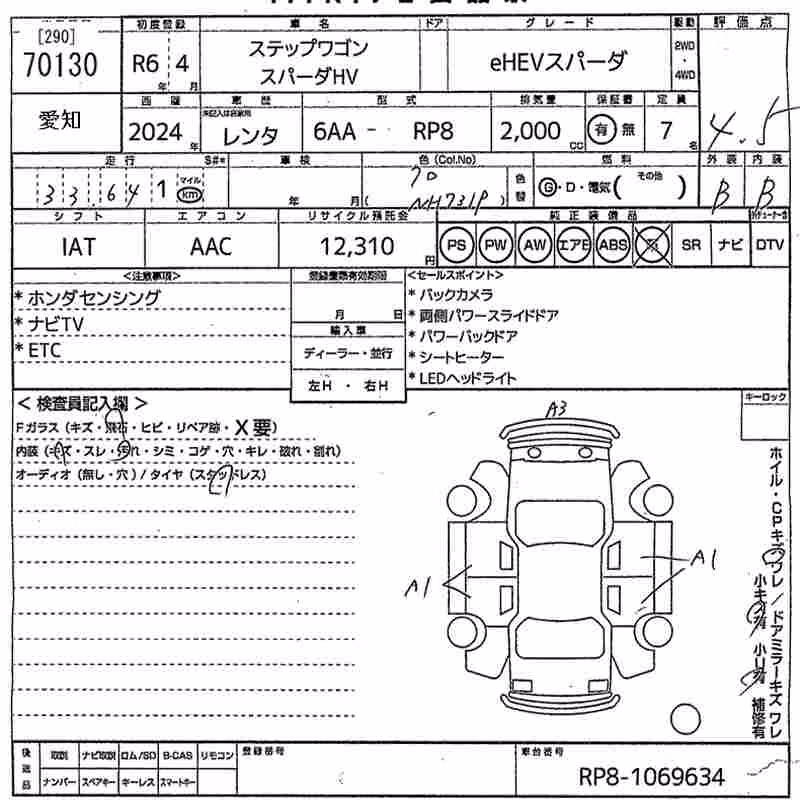 [290]
70130
初度登録
車名
ドア
グレード
駆動
評価点
R6 年 4 月
ステップワゴン
スパーダHV
eHEVスパーダ
2WD
・
4WD
愛知
車歴
型式
排気量
保証書
定員
2024 年
レンタ
6AA - RP8
2,000 cc
有 無
7 名
4.5
走行
車検
色(Col.No)
燃料
外装
内装
33,641
マイル
km
年 月
NH731P
色替
G・D・電気( その他 )
B
B
シフト
エアコン
リサイクル預託金
純正装備品
IAT
AAC
12,310 円
PS
PW
AW
エアB
ABS
SR
ナビ
DTV
<注意事項>
* ホンダセンシング
* ナビTV
* ETC
月 日
輸入車
ディーラー・並行
左H ・ 右H
<セールスポイント>
* バックカメラ
* 両側パワースライドドア
* パワーバックドア
* シートヒーター
* LEDヘッドライト
< 検査員記入欄 >
Fガラス(キズ・飛石・ヒビ・リペア跡・X要)
内装(キズ・スレ・汚れ・シミ・コゲ・穴・キレ・破れ・割れ)
オーディオ(無し・穴)/タイヤ(スタッドレス)
キーロック
A3
A1
A1
ホイル・CPキズワレ/ドアミラーキズワレ
小キズ 小U 補修有
後送品
取説
ナビ取説
ロム/SD
B-CAS
リモコン
ナンバー
スペアキー
キーレス
スマートキー
登録番号
車台番号
RP8-1069634